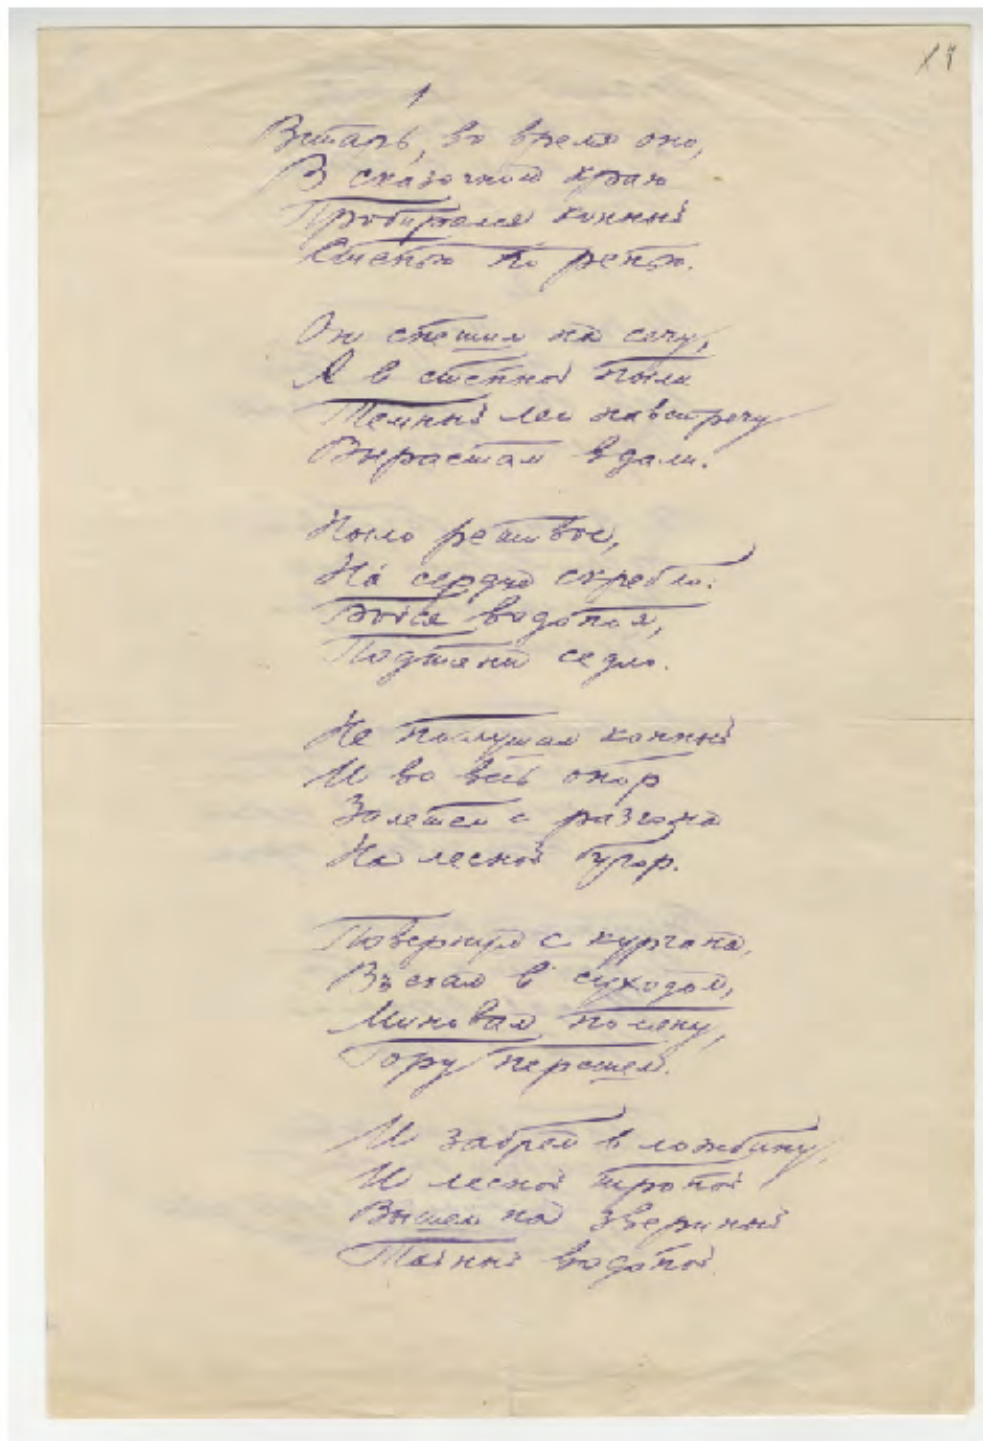 1
Встарь, во время оно,
В сказочном краю
Пробирался конный
Степью по репью.
Он спешил на сечу,
А в степной пыли
Темный лес навстречу
Вырастал вдали.
Ныло ретивое,
На́ сердце скребло:
Бойся водопоя,
Подтяни седло.
Не послушал конный
И во весь опор
Залетел с разгона
На лесной бугор.
Повернул с кургана,
Въехал в суходол,
Миновал поляну,
Гору перешел.
И забрел в ложбину,
И лесной тропой
Вышел на звериный
Тайный водопой.